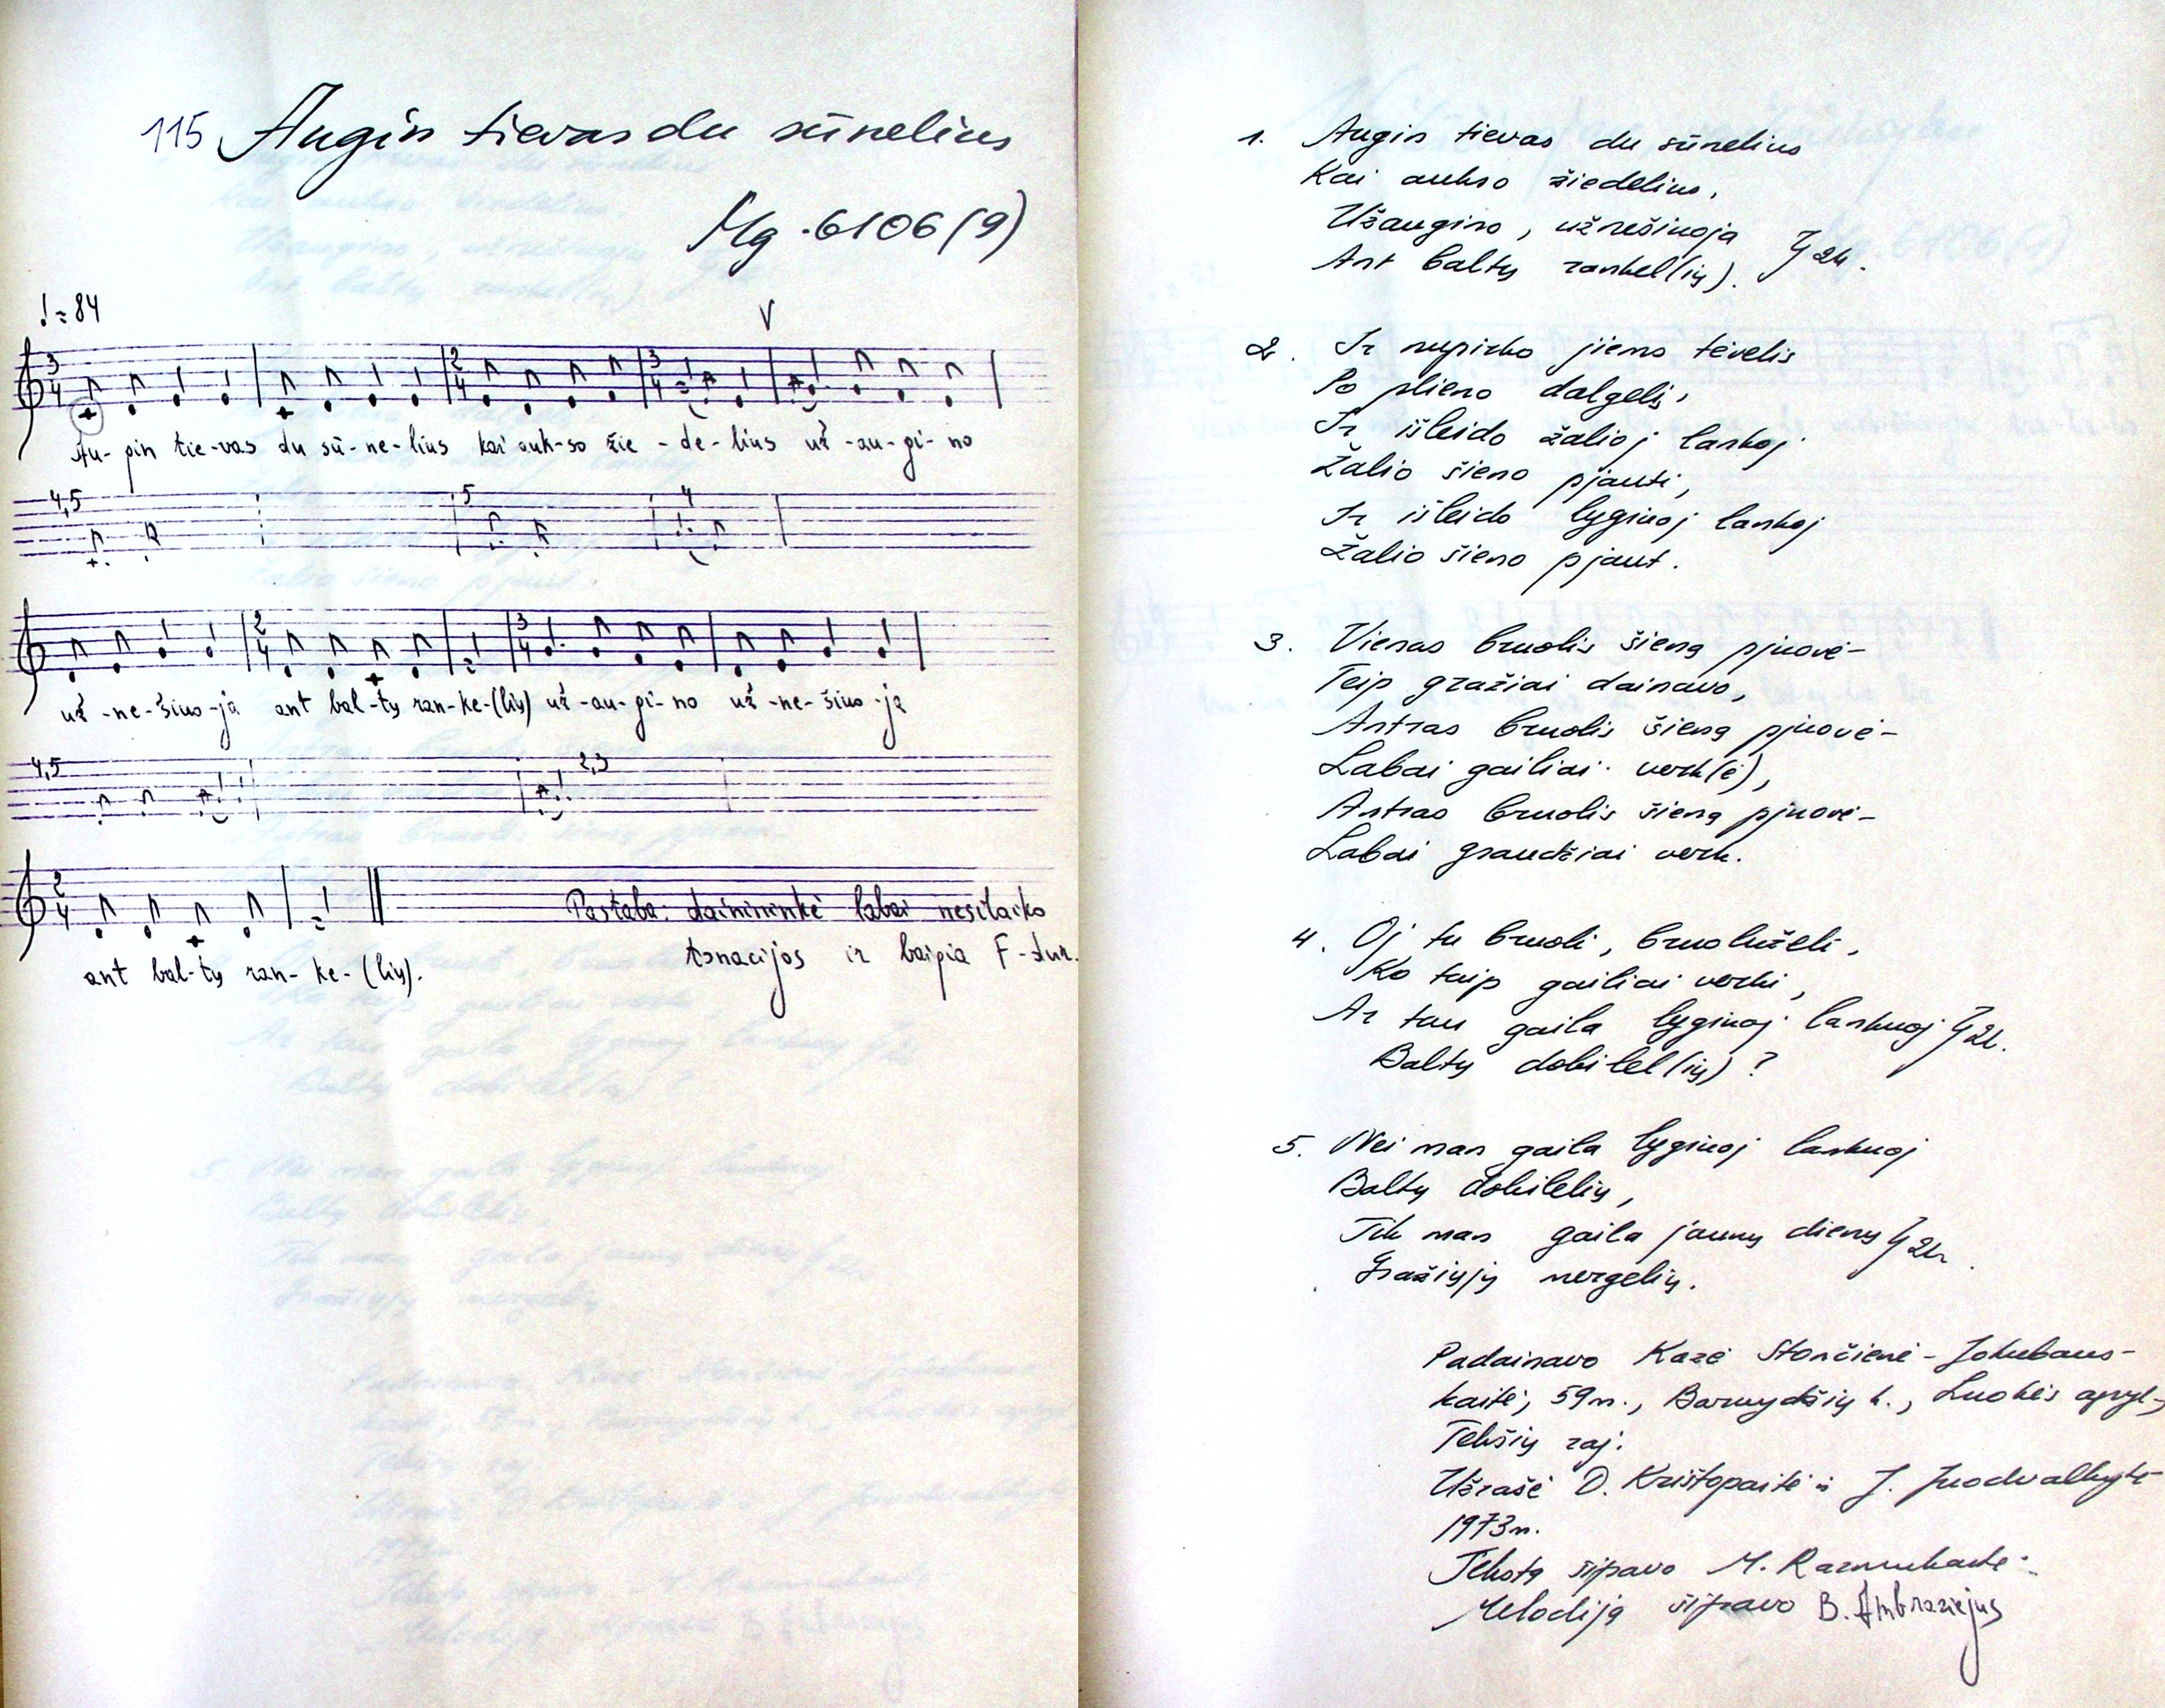 115 Augin tievas du sūnelius
Mg. 6106 (9)
♩=84
V
3 4 2 4 3 4
Au-gin tie-vas du sū-ne-lius kai auk-so žie-de-lius už-au-gi-no
4,5 5 4
2 4 3 4
už-ne-šiuo-ja ant bal-tų ran-ke-(lių) už-au-gi-no už-ne-šiuo-ja
4,5 2,3
2 4
ant bal-tų ran-ke-(lių).
Pastaba: dainininkė labai nesilaiko
tonacijos ir baigia F-dur.
1. Augin tievas du sūnelius
Kai aukso žiedelius,
Užaugino, užnešiuoja
Ant baltų rankel(ių). } 2k.
2. Ir nupirko jiems tėvelis
Po plieno dalgelį,
Ir išleido žalioj lankoj
Žalio šieno pjauti,
Ir išleido lygiuoj lankoj
Žalio šieno pjaut.
3. Vienas bruolis šieną pjuovė-
Teip gražiai dainavo,
Antras bruolis šieną pjuovė-
Labai gailiai verk(ė),
Antras bruolis šieną pjuovė-
Labai graudžiai verk.
4. Oj tu bruoli, bruoluželi,
Ko taip gailiai verki,
Ar tau gaila lygiuoj lankuoj } 2k.
Baltų dobilel(ių)?
5. Nei man gaila lygiuoj lankuoj
Baltų dobilelių,
Tik man gaila jaunų dienų } 2k
Gražiųjų mergelių.
Padainavo Kazė Stončienė-Jokubaus-
kaitė, 59m., k., Luokės apyl.,
Telšių raj.
Užrašė D. Krištopaitė ir J. Juodvalkytė
1973m.
Tekstą šifravo M.
Melodiją šifravo B. Ambraziejus